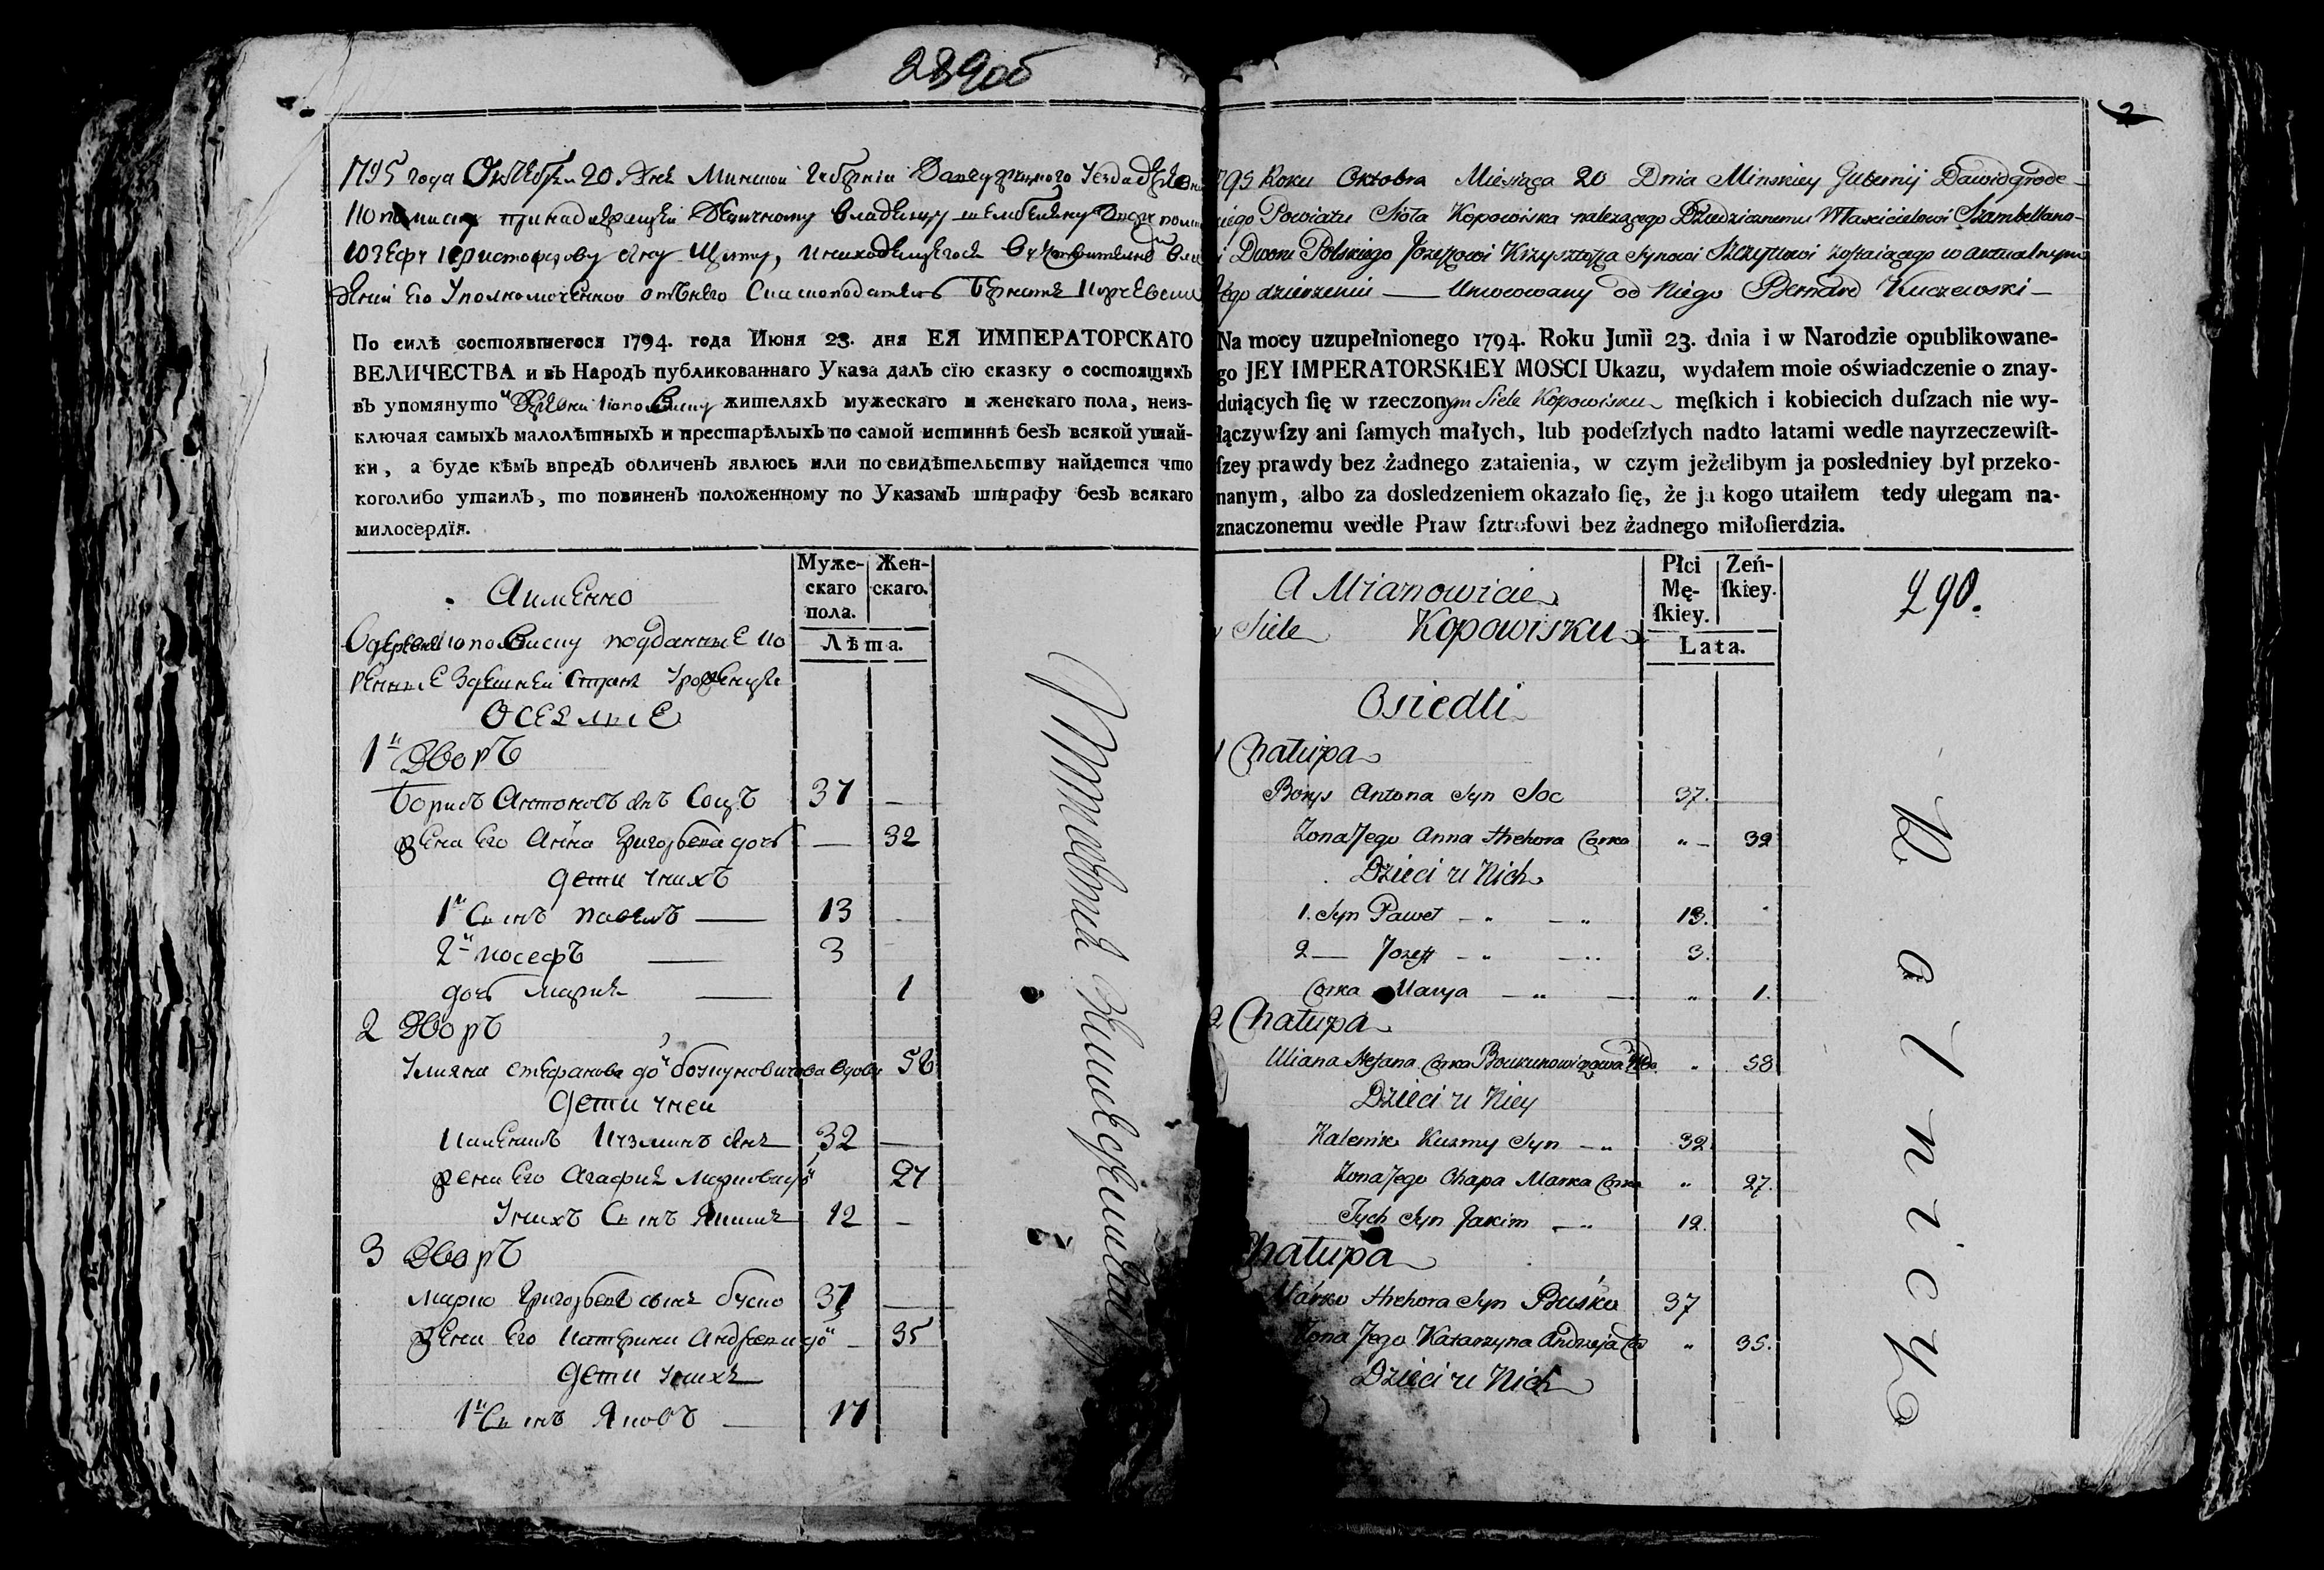 289об
1795 года Октебря 20. дня Минской Губернїи Давыдградского Уезда деревни
принадлежащей Дедичному владельцу шембеляну Двора полского
Юзефу Кристофорову сыну Щиту,
его Уполномоченной от него Бернатъ Кучевски
По силѣ состоявшегося 1794. года Июня 23. дня ЕЯ ИМПЕРАТОРСКАГО
ВЕЛИЧЕСТВА и въ Народъ публикованнаго Указа далъ сїю сказку о состоящихъ
въ упомянутой Деревни Коповиску жителяхъ мужескаго и женскаго пола, неиз-
ключая самыхъ малолѣтныхъ и престарѣлыхъ по самой истиннѣ безъ всякой утай-
ки, а буде кѣмъ впредь обличенъ явлюсь или по свидѣтельству найдется что
коголибо утаилъ, то повиненъ положенному по Указамъ штрафу безъ всякаго
милосердїя.
Муже-скаго пола. Жен-скаго.
Лѣта.
Аименно
Вдеревне Коповиску подданные Ко
ренные Здешней Стране Уроженцы
ОСЕДЛЫЕ
1й Дворъ
Борисъ Антоновъ снъ Соцъ 37 —
жена Его Анна Григорьева дочь — 32
дети Унихъ
1й Сынъ Павелъ — 13
2й Иосефъ — 3
дочь Мария — 1
2 Дворъ
Улияна Стефанова до Бочкуновичова вдова 58
дети Уней
Каленикъ Кузминъ снъ 32 —
жена Его Агафия Маркова до 27
Унихъ Сынъ Якимъ 12 —
3 Дворъ
Марко Григорьевъ сынъ Буско 37 —
жена Его Катерина Андреева до — 35
дети Унихъ
1й Сынъ Яковъ — 17
2
795 Roku Oktobra Miesiąca 20 Dnia Minskiey Gubernij Dawidgrode-
kiego Powiatu Sioła Kopowiska nalezącego Dziedzicznemu Włascicielowi Szambellano-
i Dworu Polskiego Jozeffowi Krzysztoffa Synowi Szczyttowi zostaiącego w aktualnym
Jego dzierzeniu — Umocowany od Niego Bernard Kuczewski —
Na mocy uzupełnionego 1794. Roku Junii 23. dnia i w Narodzie opublikowane-
go JEY IMPERATORSKIEY MOSCI Ukazu, wydałem moie oświadczenie o znay-
duiących ſię w rzeczonym Siele Kopowisku męſkich i kobiecich duſzach nie wy-
łączywſzy ani ſamych małych, lub podeſzłych nadto latami wedle nayrzeczewiſt-
ſzey prawdy bez żadnego zataienia, w czym jeżelibym ja posledniey był przeko-
nanym, albo za dosledzeniem okazało ſię, że ja kogo utaiłem tedy ulegam na-
znaczonemu wedle Praw ſztrofowi bez żadnego miłoſierdzia.
Płci Mę-ſkiey. Zeń-ſkiey.
Lata.
290.
A Mianowicie
w Siele Kopowisku
Osiedli
1 Chałupa
Borys Antona Syn Soc 37.
Zona Jego Anna Hrehora Corka „ – 32
Dzieci u Nich
1. Syn Paweł – „ – „ 13.
2 — Jozeff – „ – „ 3.
Corka Marya – „ – „ 1.
2 Chałupa
Uliana Stefana Corka Boczkunowiczowa Wdo. „ 58
Dzieci u Niey
Kalenik Kuzmy Syn – „ 32.
Zona Jego Chapa Marka Corka „ 27.
Tych Syn Jakim – „ 12.
Chałupa
Marko Hrehora Syn Busko 37
Zona Jego Katarzyna Andrzeja Co „ 35.
Dzieci u Nich
Rolnicy